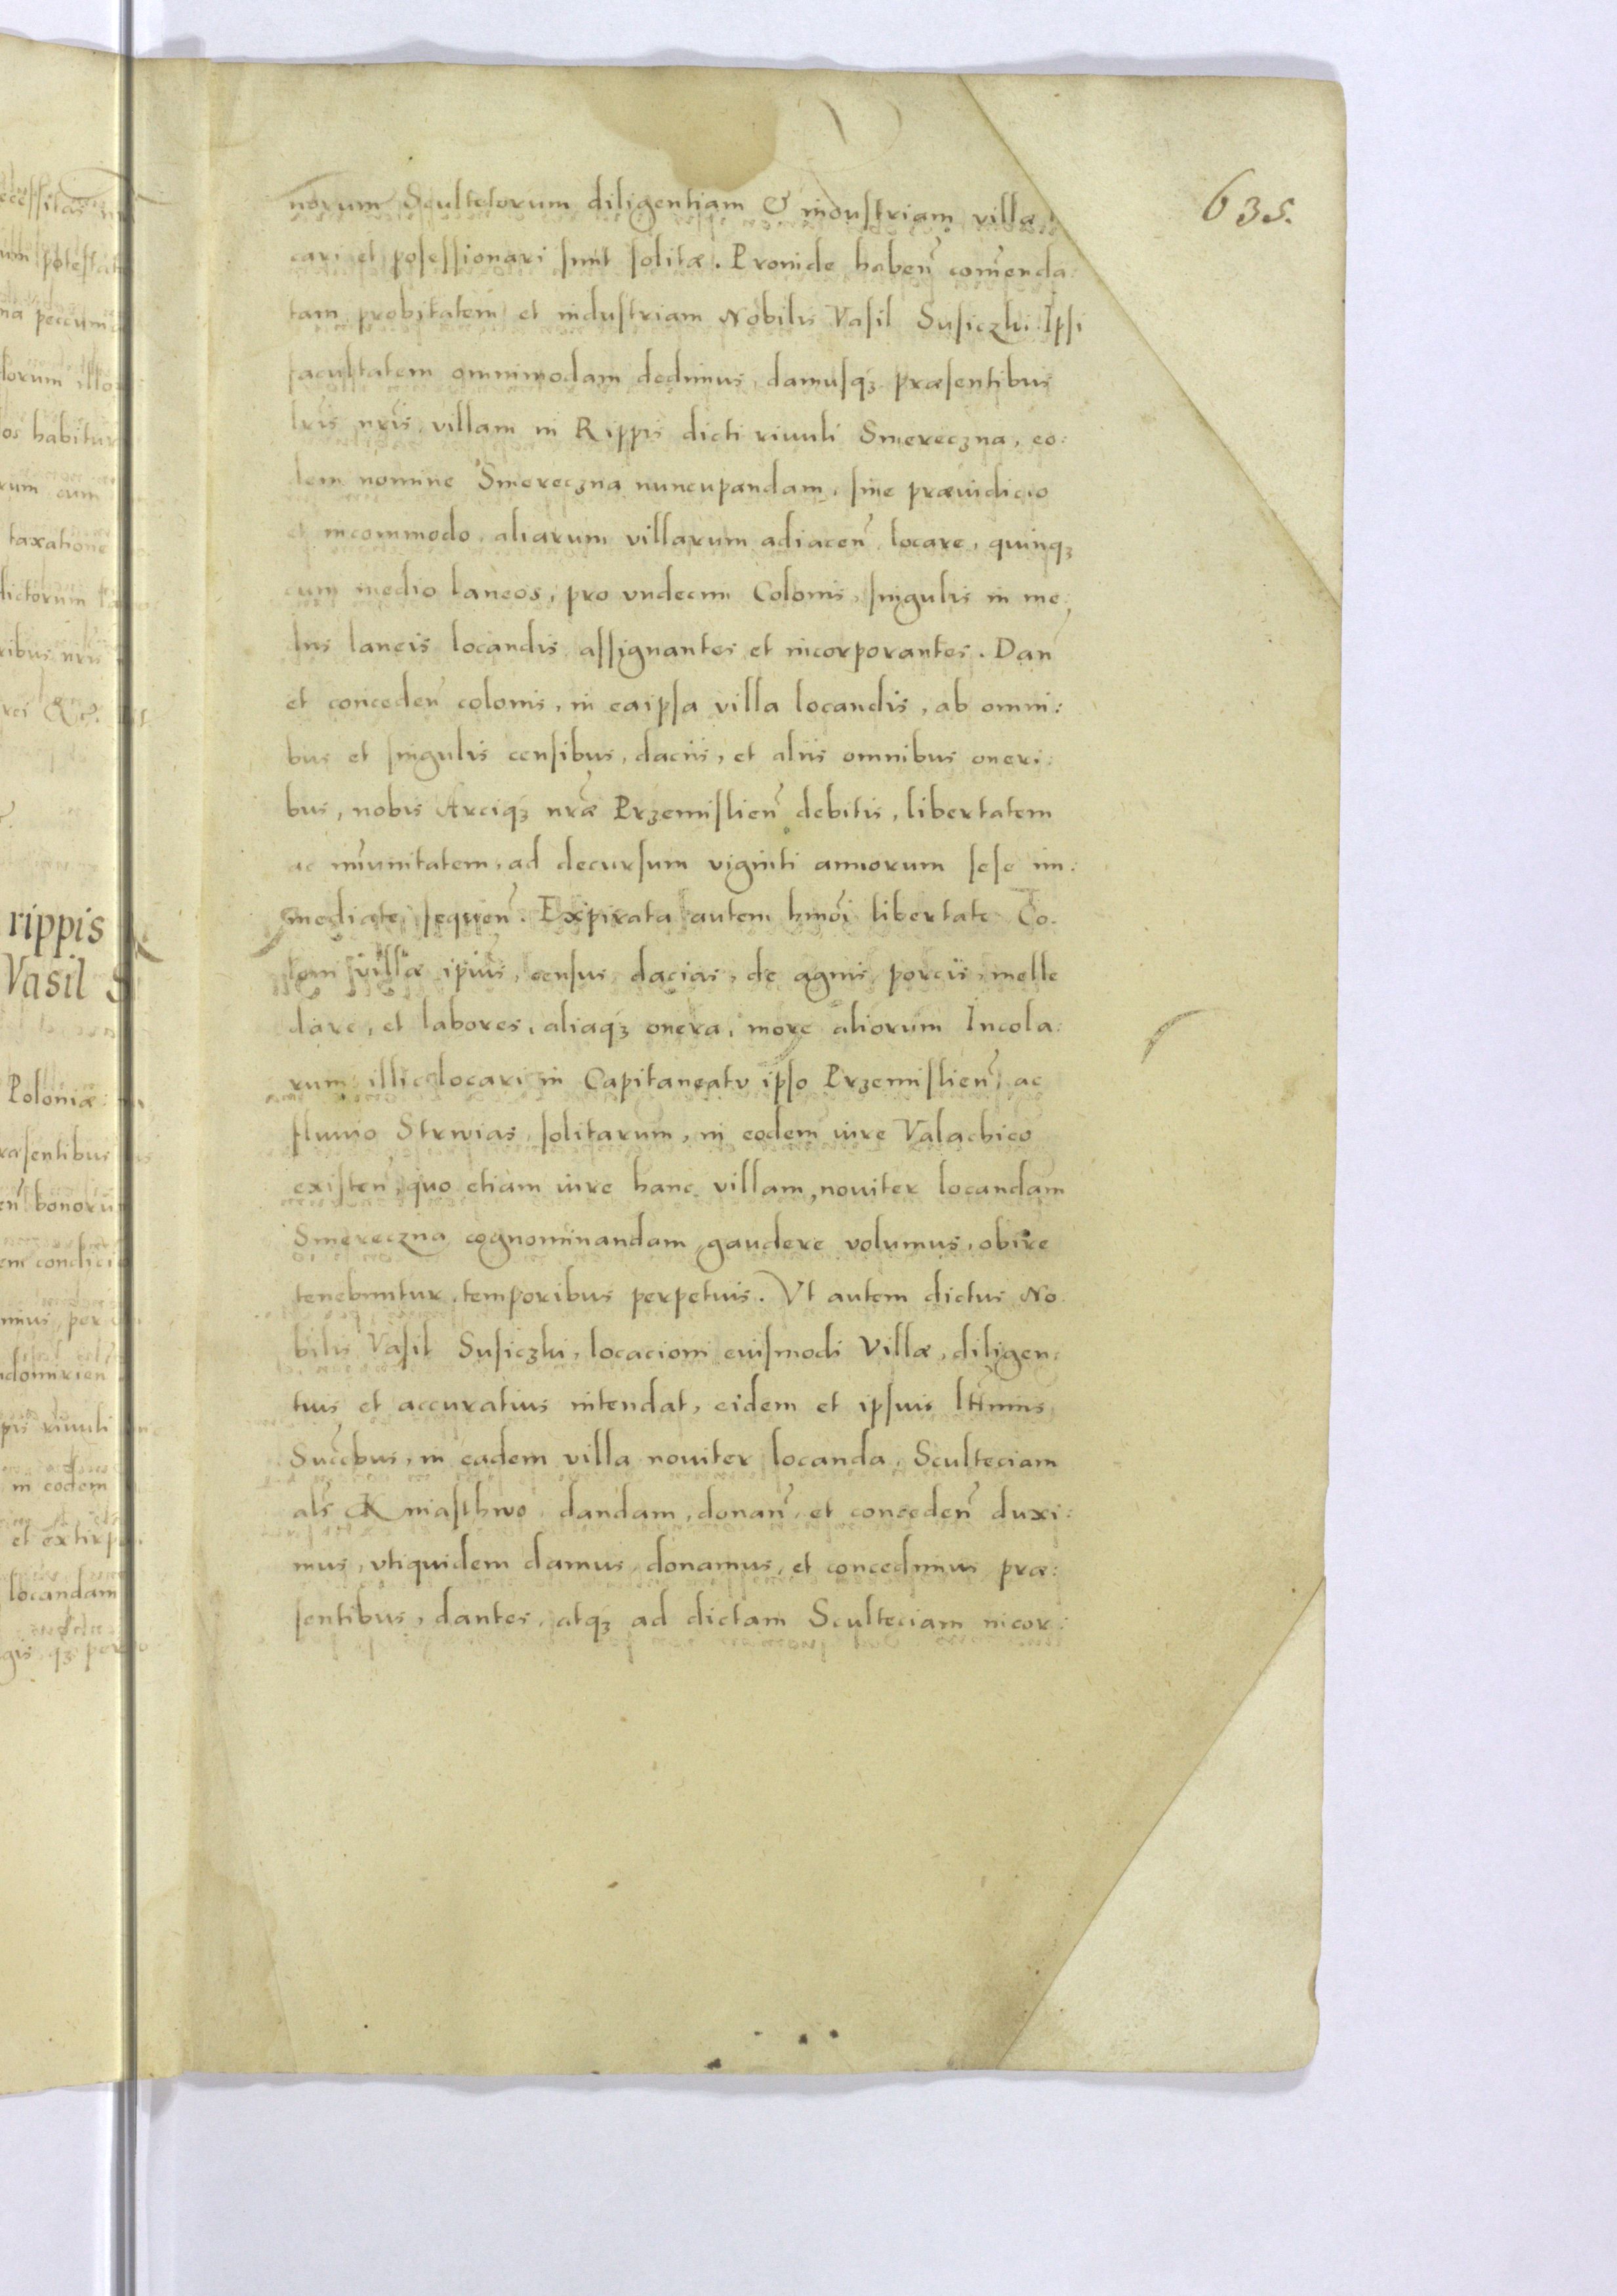 635.
norum Scultetorum diligentiam & industriam villæ
cari et posessionari sunt solitæ. Proinde haben̄ com̄enda:
tam probitatem et industriam Nobilis Vasil Susiczki Ipsi
facultatem omnimodam dedimus, damusqꝫ præsentibus
lr̄is nr̄is, villam in Rippis dicti riuuli Smereczna, eo:
dem nomine Smereczna nuncupandam, sine præiuidicio
et incommodo aliarum villarum adiacen̄ locare, quinqꝫ
cum medio laneos, pro vndecim Colonis, singulis in me:
diis laneis locandis assignantes et incorporantes. Dan̄
et conceden̄ colonis, in eaipsa villa locandis, ab omni:
bus et singulis censibus, daciis, et aliis omnibus oneri:
bus, nobis Arciqꝫ nr̄æ Przemislien̄ debitis, libertatem
ac im̄unitatem, ad decursum viginti annorum sese im:
mediate sequen̄. Expirata autem hmōi libertate Co:
loni villæ ipiūs, census, dacias, de agnis, porcis, melle
dare, et labores, aliaqꝫ onera, more aliorum Incola:
rum illic locari in Capitaneatu ipso Przemislien̄, ac
fluuio Strwias, solitarum, in eodem iure Valachico
existen̄, quo etiam iure hanc villam, nouiter locandam
Smereczna cognominandam, gaudere volumus, obire
tenebuntur, temporibus perpetuis. Vt autem dictus No
bilis Vasil Susiczki, locacioni eiusmodi Villæ, diligen:
tius et accuratius intendat, eidem et ipsius lttimis
Succ̄bus, in eadem villa nouiter locanda, Sculteciam
als̄ Kniasthwo, dandam, donan̄, et conceden̄ duxi:
mus, vtiquidem damus, donamus, et concedimus præ:
sentibus, dantes, atqꝫ ad dictam Sculteciam incor: